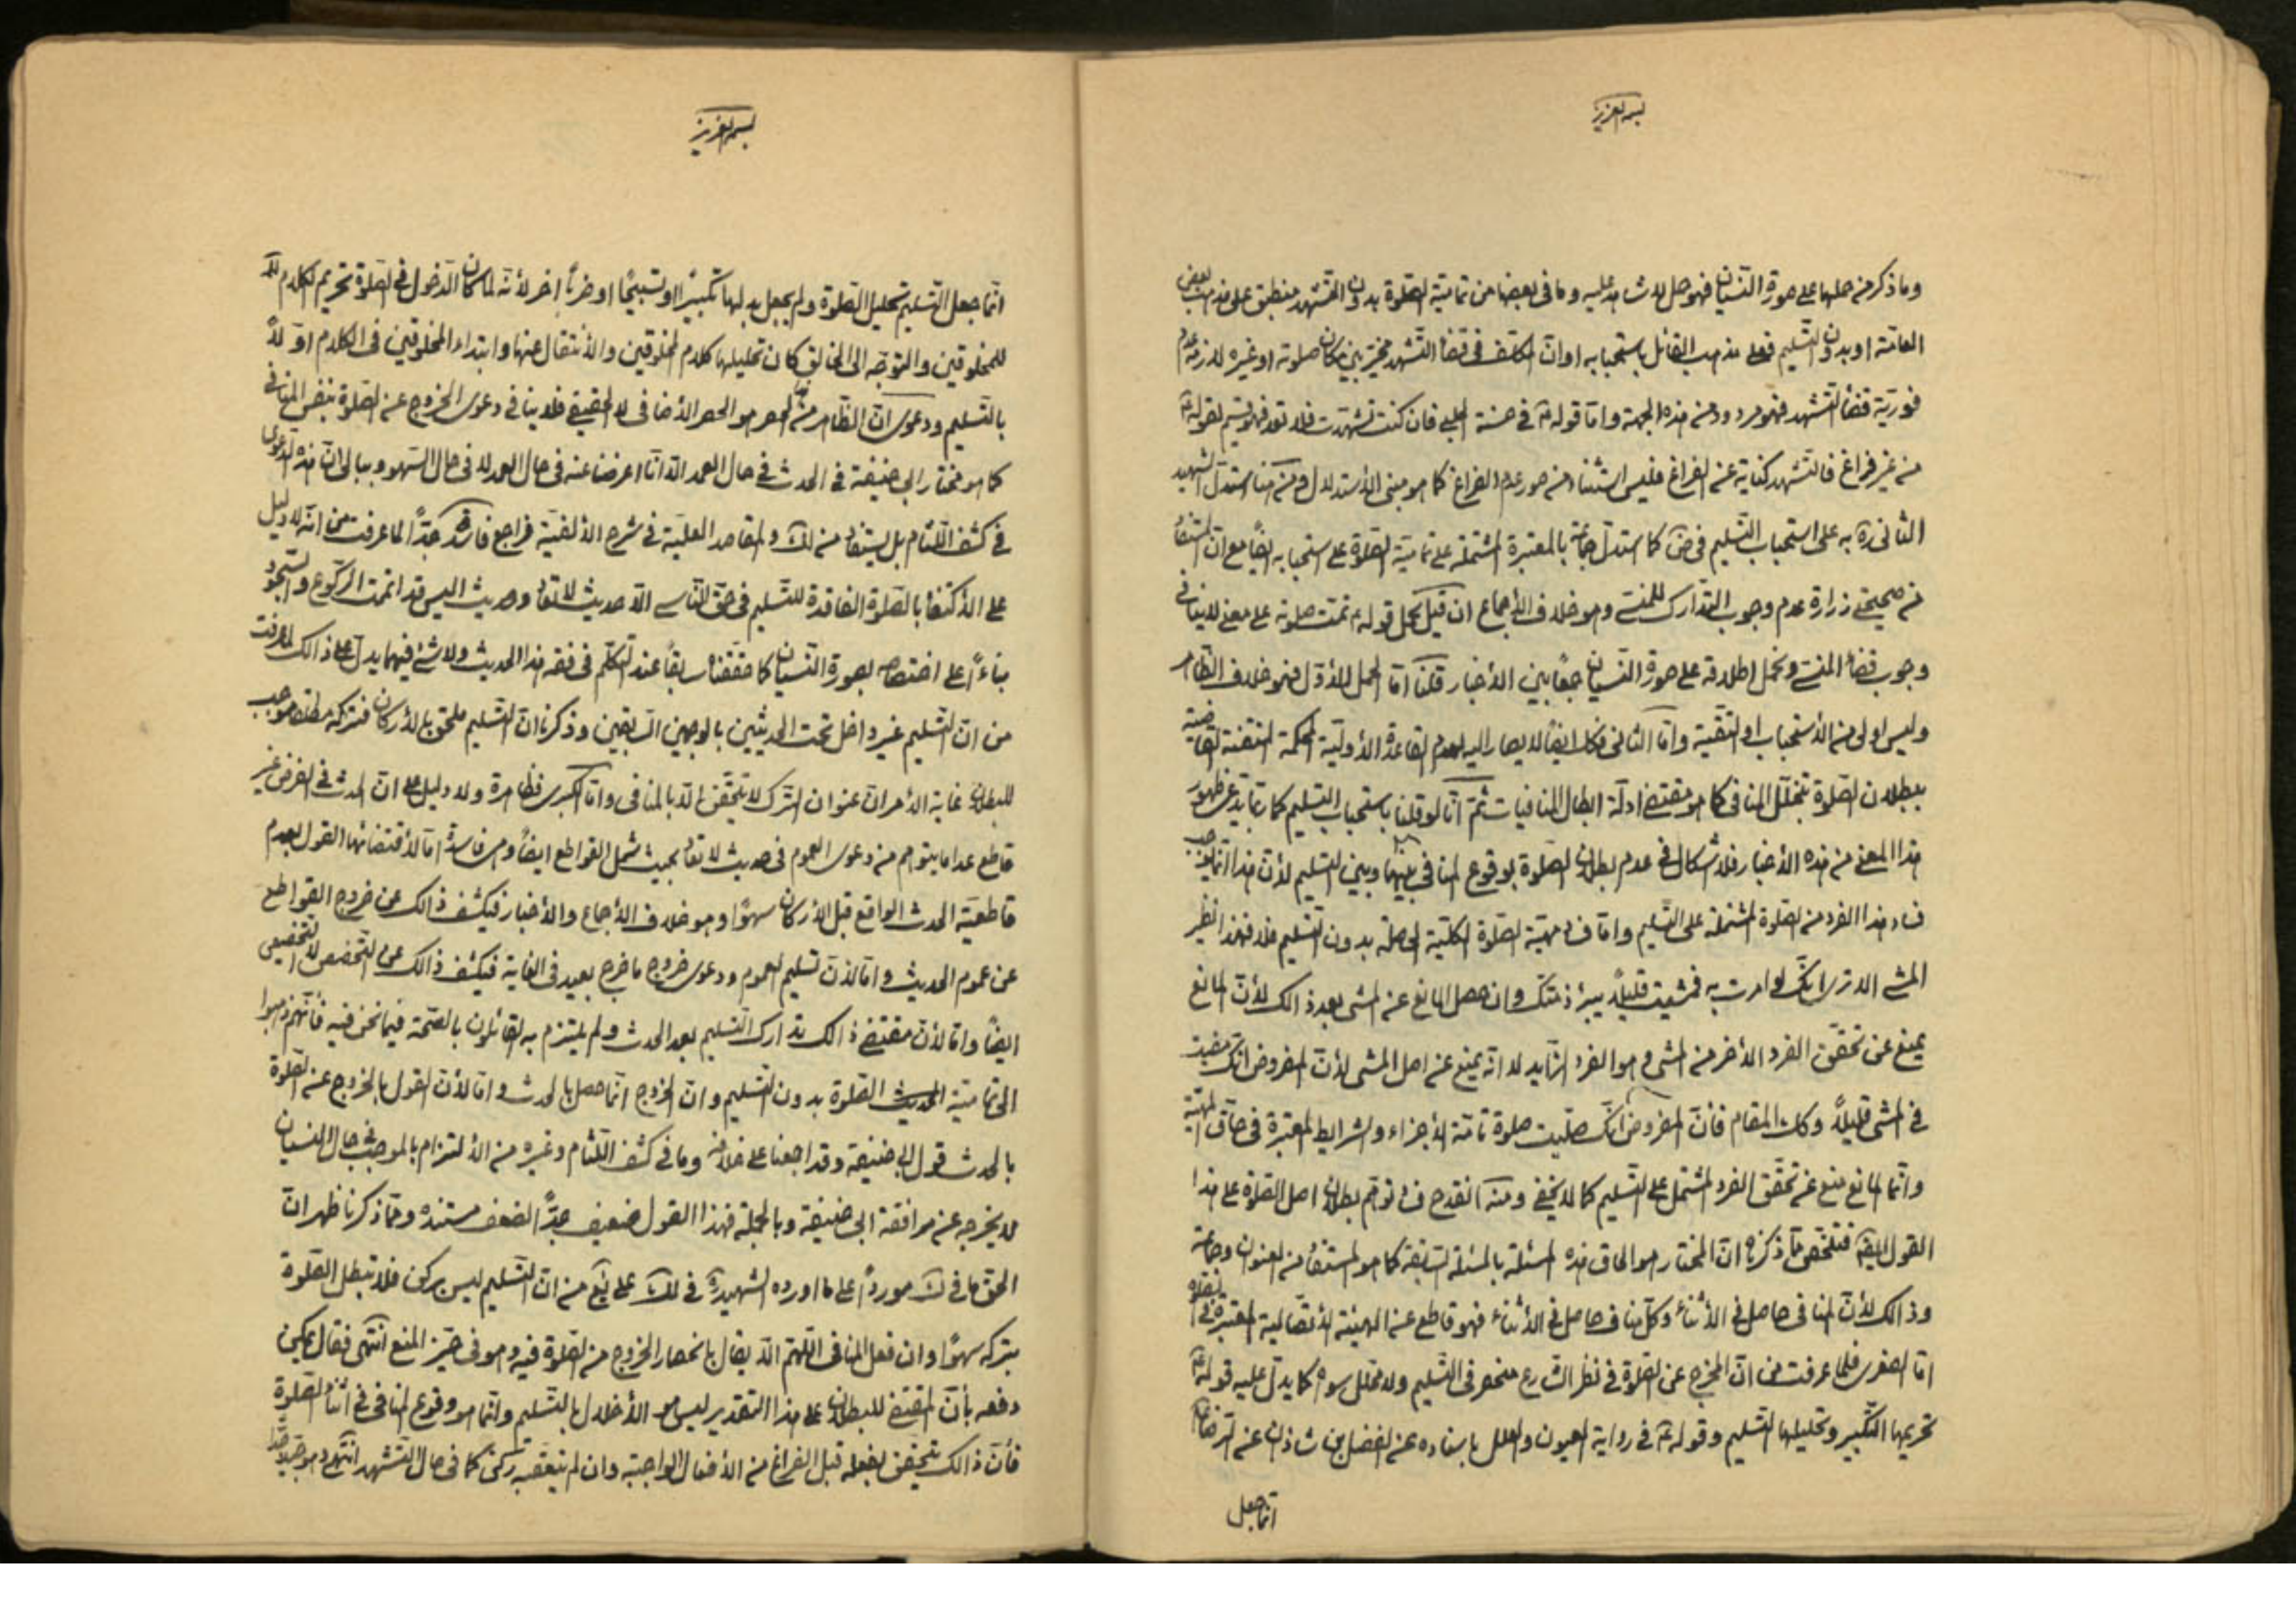 بسمه العزيز
وما ذكر من حملها على صورة النسيان فهو حمل لا شاهد عليه وما في بعضها من تمامية الصلوة بدون التشهد منطبق على مذهب بعض
العامة او بدون التسليم فعلى مذهب القائل باستحبابه او ان المكلف في قضاء التشهد مخير بين مكان صلوته او غيره للازمه عدم
فورية قضاء التشهد فهو مردود من هذه الجهة واما قوله في حسنة الحلبي فان كنت تشهدت فلا تعد فهو قسيم لقوله
من غير فراغ فالتشهد كناية عن الفراغ فليس استثناء من صور عدم الفراغ كما هو مبنى الاستدلال ومن هنا استدل الشهيد
الثاني ره به على استحباب التسليم في ض كما استدل جماعة بالمعتبرة المشتملة على تمامية الصلوة على استحبابه ايضا مع ان المستفاد
من صحيحتي زرارة عدم وجوب التدارك للمنسي وهو خلاف الاجماع ان قيل نحمل قوله تمت صلوته على معنى لا ينافي
وجوب قضاء المنسي ونحمل اطلاقه على صورة النسيان جمعا بين الأخبار قلنا اما الحمل الاول فهو خلاف الظاهر
وليس اولى من الاستحباب او التقية واما الثاني فكك ايضا لا يصار اليه لعدم القاعدة الأولية المحكمة المتقنة القاضية
ببطلان الصلوة بتخلل المنافي كما هو مقتضى ادلة ابطال المنافيات ثم انا لو قلنا باستحباب التسليم كما ربما يدعى ظهور
هذا المعنى من هذه الأخبار فلا اشكال في عدم بطلان الصلوة بوقوع المنافي بينها وبين التسليم لأن هذا انما يوجب
فساد هذا الفرد من الصلوة المشتملة على التسليم واما فساد مهية الصلوة الكلية الحاصلة بدون التسليم فلا فهذا نظير
المشي الا ترى انك لو امرت به فمشيت قليلا يبرء ذمتك وان حصل المانع عن المشي بعد ذالك لأن المانع
يمنع عن تحقق الفرد الأخر من المشي وهو الفرد الزايد لا انه يمنع عن اصل المشي لأن المفروض انك مضيت
في المشي قليلا وكك المقام فأن المفروض انك صليت صلوة تامة الأجزاء والشرايط المعتبرة في صدق المهية
وانما المانع منع عن تحقق الفرد المشتمل على التسليم كما لا يخفى ومنه انقدح فساد توهم بطلان اصل الصلوة على هذا
القول ايضا فتلخص مما ذكرناه ان المختار هو الحاق هذه المسئلة بالمسئلة السابقة كما هو المستفاد من العنوان وصاحبه
وذالك لأن المنافي حاصل في الأثناء وكل مناف حاصل في الأثناء فهو قاطع عن الهيئة الأتصالية المعتبرة في الصلوة
اما الصغرى فلما عرفت من ان المخرج عن الصلوة في نظر الشارع منحصر في التسليم ولا محلل سواه كما يدل عليه قوله
تحريمها التكبير وتحليلها التسليم وقوله في رواية العيون والعلل باسناده عن الفضل بن شاذان عن الرضا
انما جعل
بسمه العزيز
انما جعل التسليم تحليل الصلوة ولم يجعل بدلها تكبيرا او تسبيحا او ضربا اخر لأنه لما كان الدخول في الصلوة تحريم الكلام
للمخلوقين والتوجه الى الخالق كان تحليلها كلام المخلوقين والأنتقال عنها وابتداء المخلوقين في الكلام اولا
بالتسليم ودعوى ان الظاهر من الحصر هو الحصر الأضافي لا الحقيقي فلا ينافي دعوى الخروج عن الصلوة بنفس المنافي
كما هو مختار ابي حنيفة في الحدث في حال العمد الا انا اعرضنا عنه في حال العمد لا في حال السهو وببالي ان هذه الدعوى
في كشف اللثام بل يستفاد من لك والمقاصد العلية في شرح الألفية فراجع فاسدة جدا لما عرفت من انه لا دليل
على الأكتفاء بالصلوة الفاقدة للتسليم في حق الناسي الا حديث لا تعاد وحديث اليس قد اتممت الركوع والسجود
بناءً على اختصاصه بصورة النسيان كما حققناه سابقا عند التكلم في فقه هذا الحديث ولا شئ فيهما يدل على ذالك لما عرفت
من ان التسليم غير داخل تحت الحديثين بالوجهين السابقين وذكرنا ان التسليم ملحق بالأركان فتركه مطلقا موجب
للبطلان غاية الأمر ان عنوان الترك لا يتحقق الا بالمنافي واما الكبرى فظاهرة ولا دليل على ان الحدث في الفرض غير
قاطع عدا ما يتوهم من دعوى العموم في حديث لا تعاد بحيث شمل القواطع ايضا وهي فاسدة اما لأقتضائها القول بعدم
قاطعية الحدث الواقع قبل الأركان سهوا وهو خلاف الأجماع والأخبار فيكشف ذالك عن خروج القواطع
عن عموم الحديث واما لأن تسليم العموم ودعوى خروج ما خرج بعيد في الغاية فيكشف ذالك عن التخصص لا التخصيص
ايضا واما لأن مقتضى ذالك تدارك التسليم بعد الحدث ولم يلتزم به القائلون بالصحة فيما نحن فيه فأنهم ذهبوا
الى تمامية الصلوة بدون التسليم وان الخروج انما حصل بالحدث واما لأن القول بالخروج عن الصلوة
بالحدث قول ابي حنيفة وقد اجمعنا على خلافه وما في كشف اللثام وغيره من الألتزام بالموجب في حال النسيان
لا يخرجه عن موافقة ابي حنيفة وبالجملة فهذا القول ضعيف جدا لضعف مستنده ومما ذكرنا ظهر ان
الحق ما في ك موردا على ما اورده الشهيد ره في لك على يع من ان التسليم ليس بركن فلا تبطل الصلوة
بتركه سهوا وان فعل المنافي اللهم الا يقال بانحصار الخروج من الصلوة فيه وهو في حيز المنع انتهى فقال يمكن
دفعه بأن المقتضى للبطلان على هذا التقدير ليس هو الأخلال بالتسليم وانما هو وقوع المنافي في اثناء الصلوة
فأن ذالك يتحقق بفعله قبل الفراغ من الأفعال الواجبة وان لم يتعقبه ركن كما في حال التشهد انتهى وهو جيد جدا